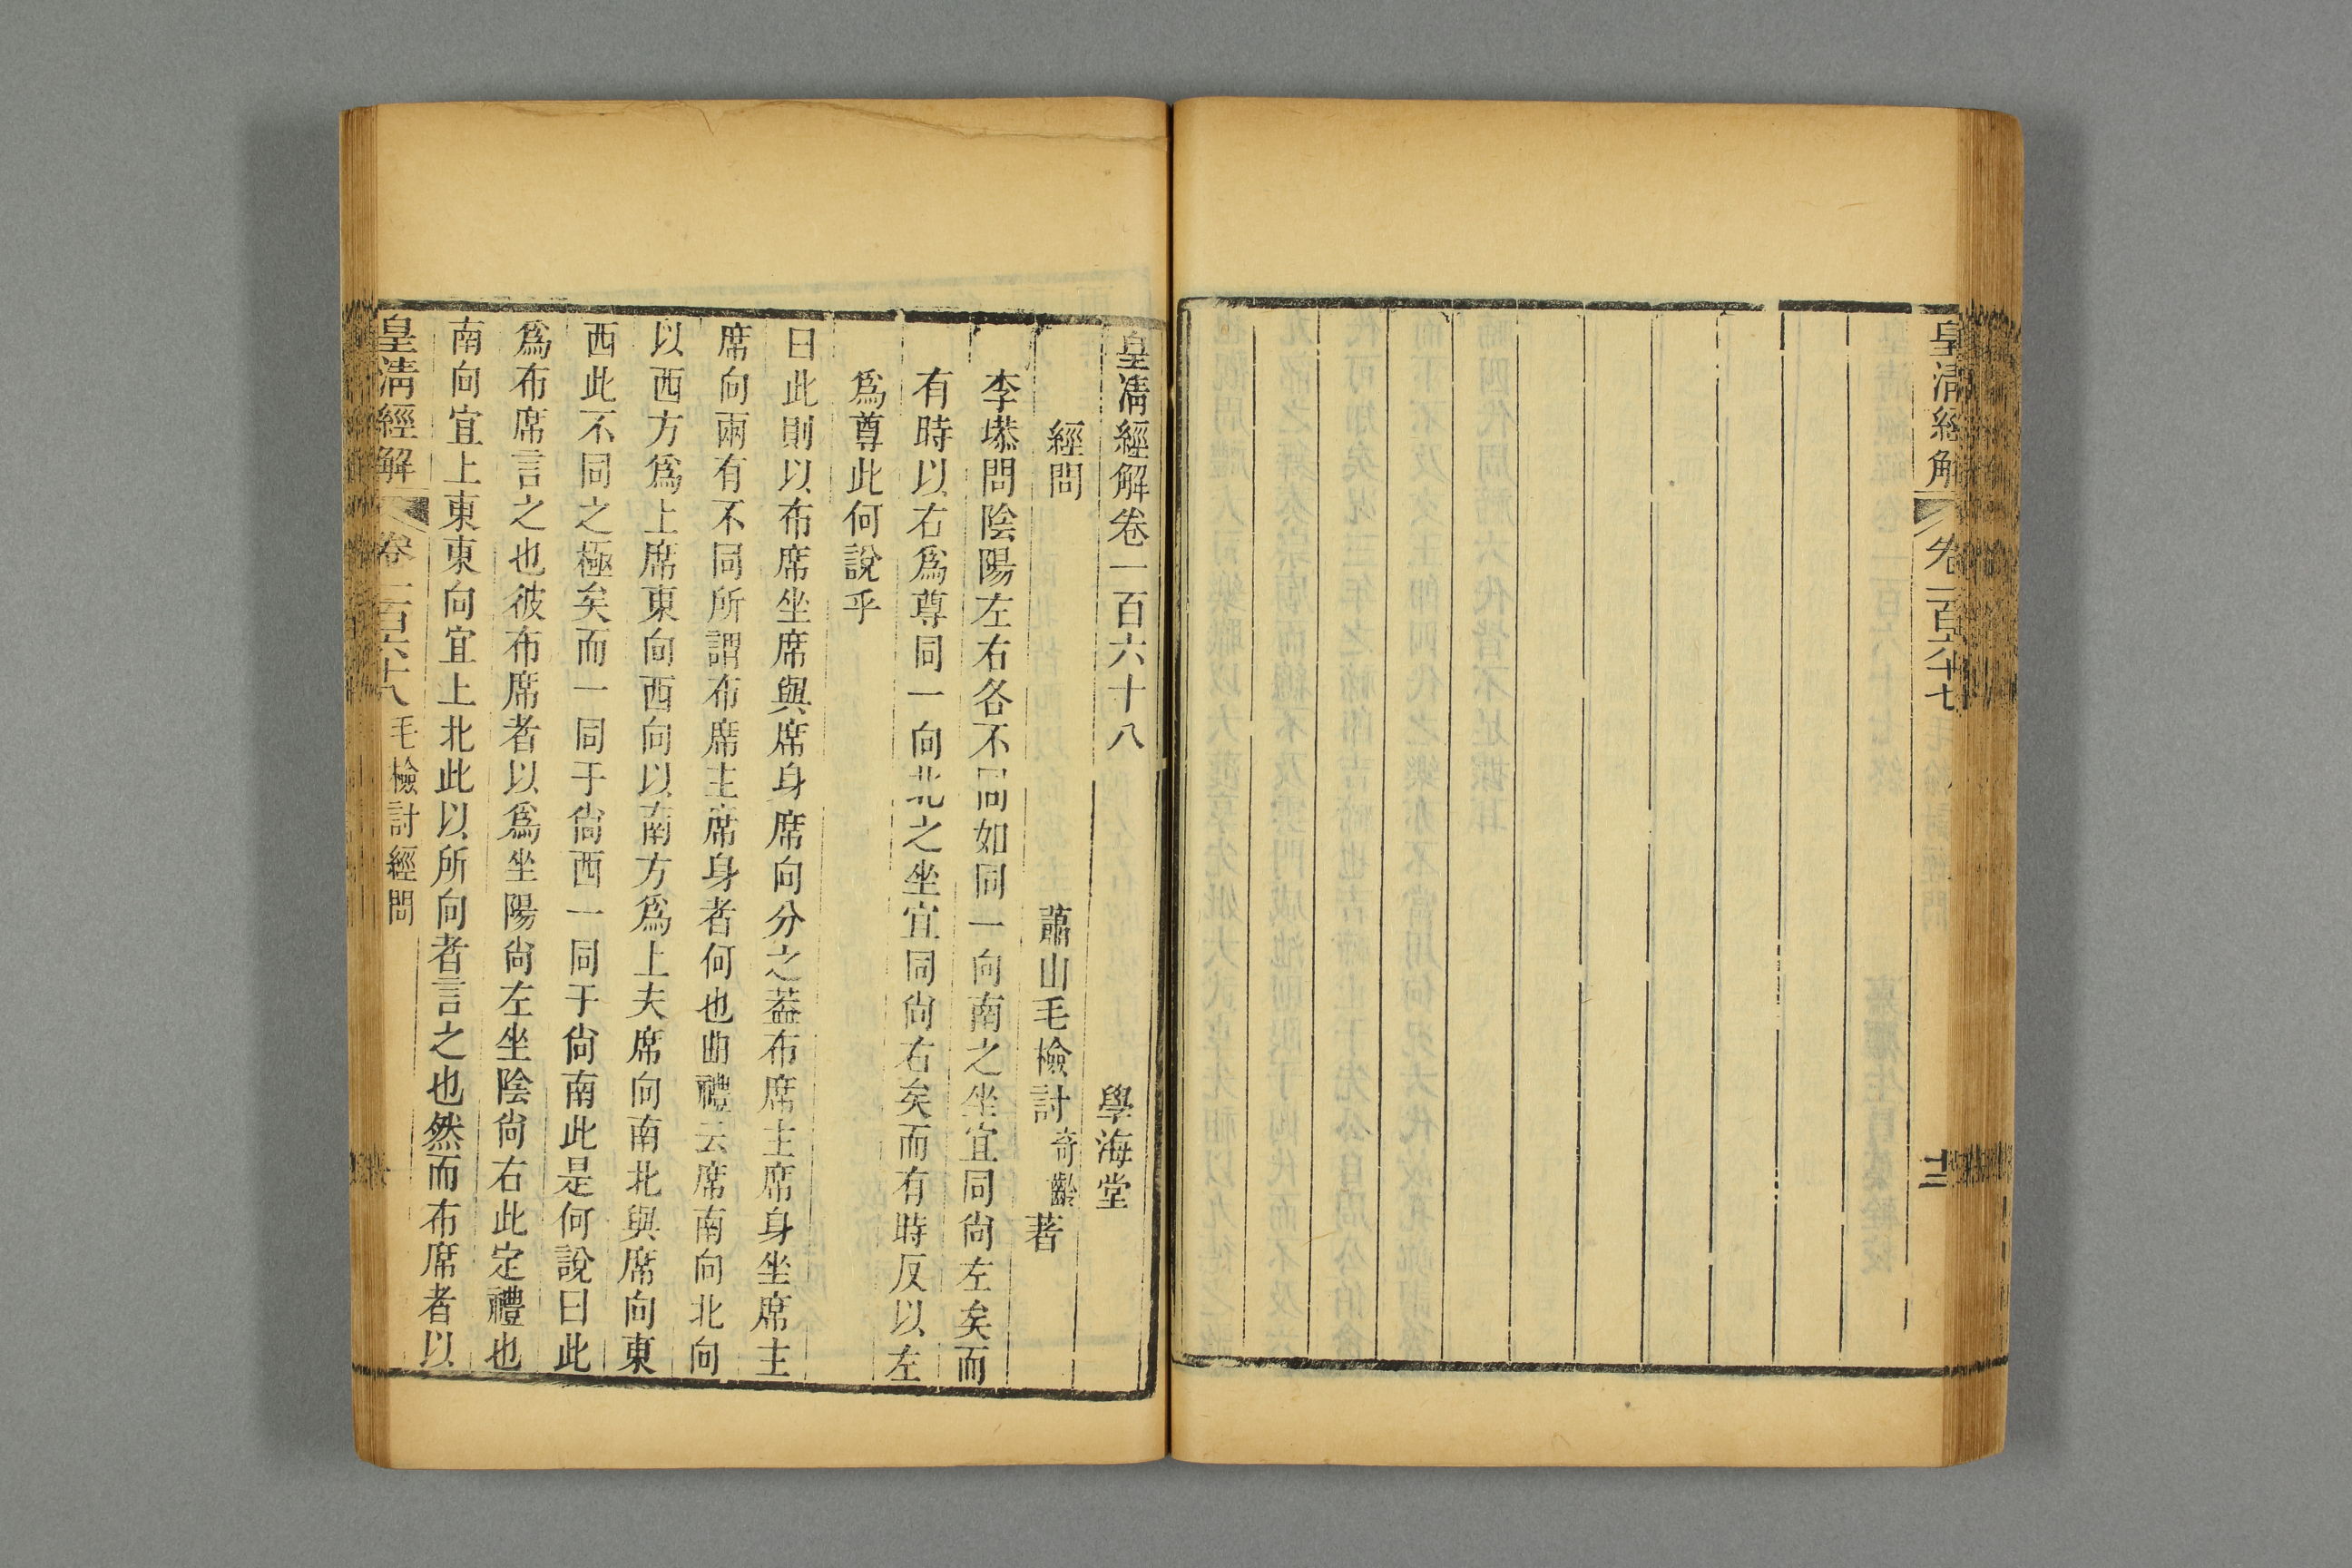 皇清經解 卷一百六十七
十三
皇清經解卷一百六十八
學海堂
經問
蕭山毛檢討奇齡著
李塨問陰陽左右各不同如同一向南之坐宜同尙左矣而
有時以右爲尊同一向北之坐宜同尙右矣而有時反以左
爲尊此何說乎
曰此則以布席坐席與席身席向分之葢布席主席身坐席主
席向兩有不同所謂布席主席身者何也曲禮云席南向北向
以西方爲上席東向西向以南方爲上夫席向南北與席向東
西此不同之極矣而一同于尙西一同于尙南此是何說曰此
爲布席言之也彼布席者以爲坐陽尙左坐陰尙右此定禮也
南向宜上東東向宜上北此以所向者言之也然而布席者以
皇清經解 卷一百六十八 毛檢討經問